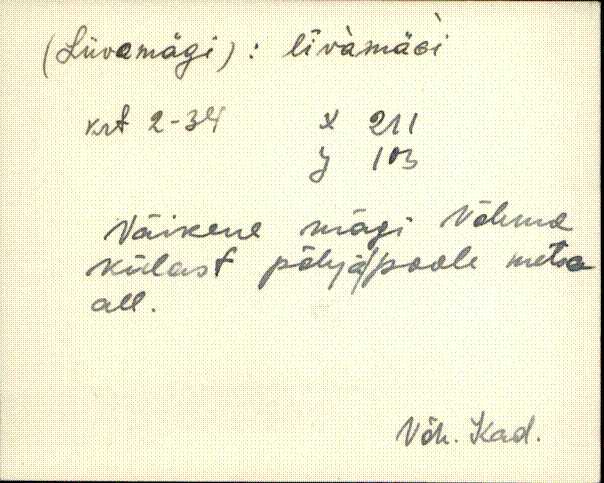 (Liivamägi): lìvàmäGì
krt 2-34 x 211
y 103
Väikene mägi Võhma
külast põhja/poole metsa
all.
Võh. Kad.